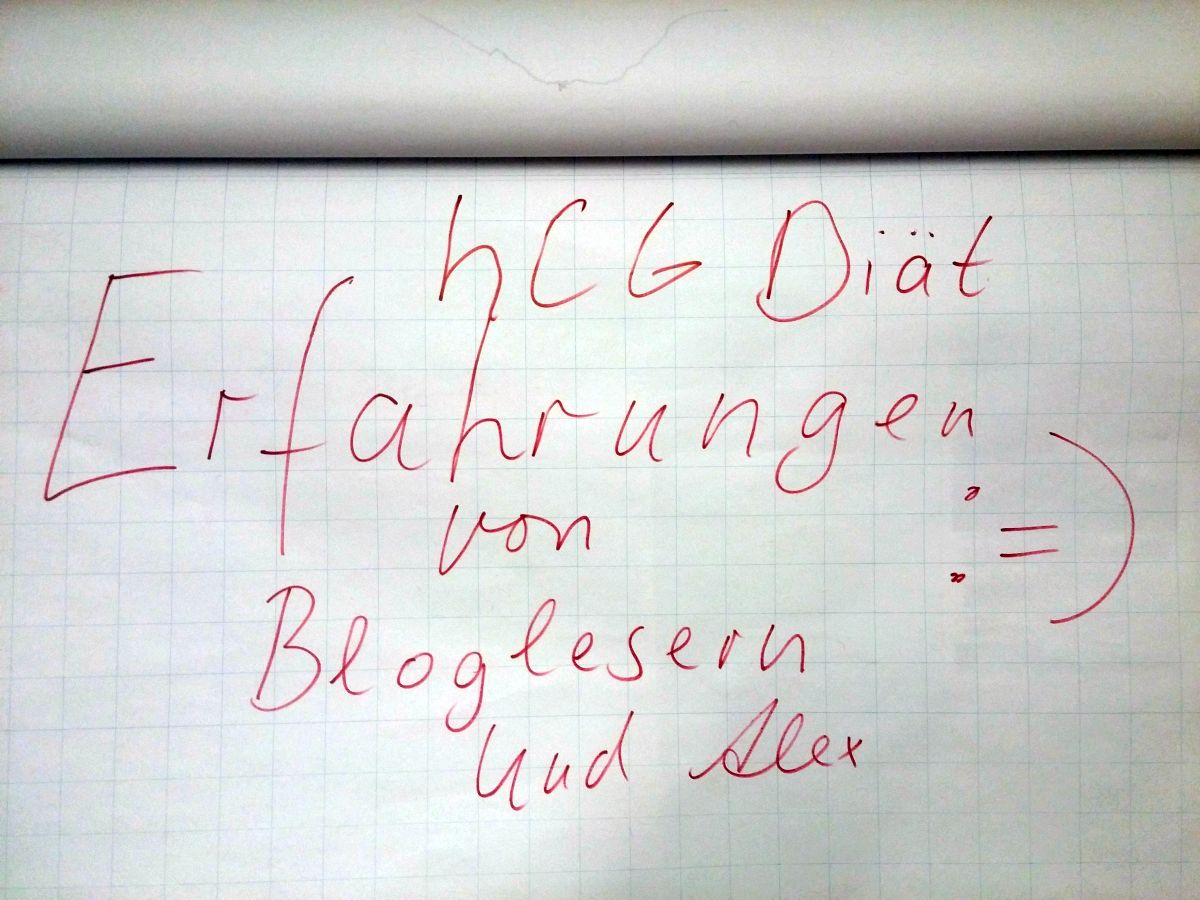 hCG Diät
Erfahrungen
von :=)
Bloglesern
und Alex